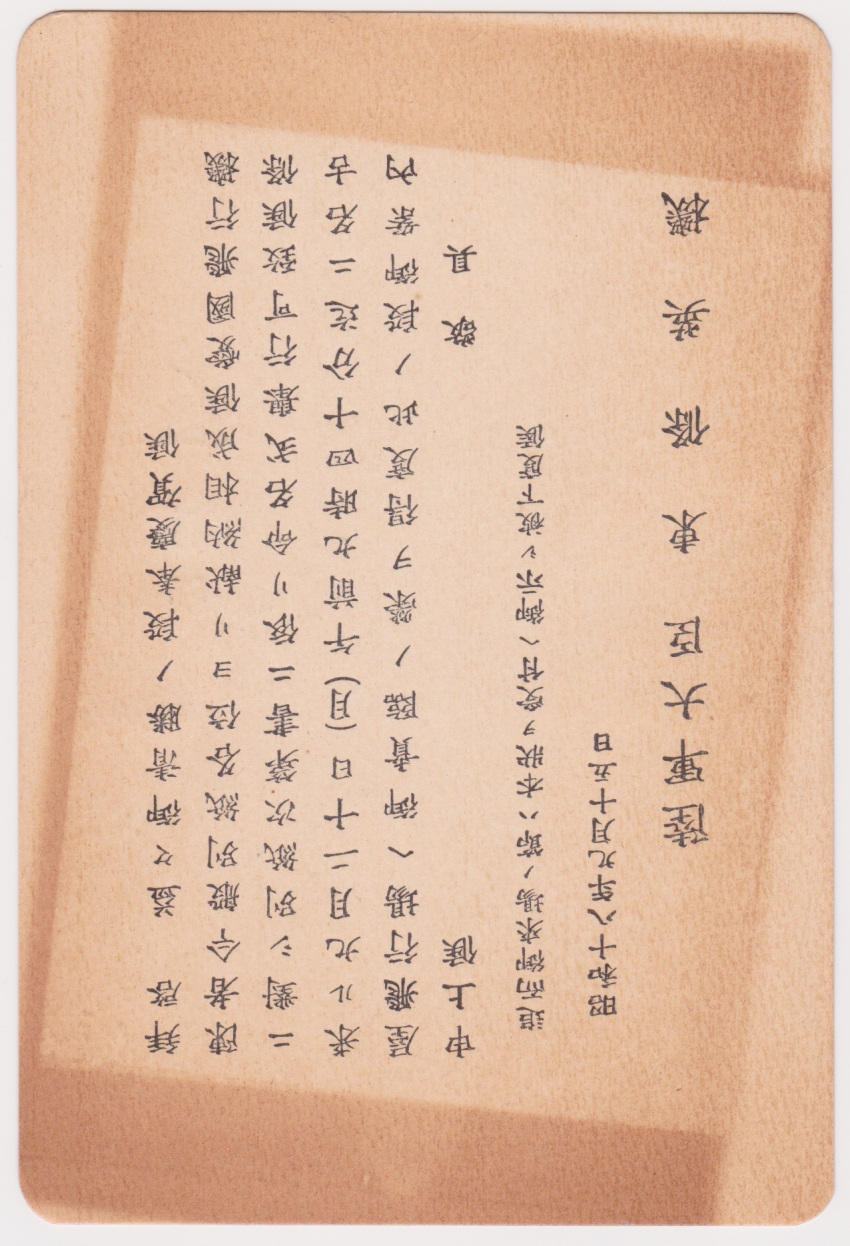 拝啓 益々御清勝ノ段奉慶賀候
陳者今般別紙各位ヨリ献納相成候愛國飛行機
ニ對シ別紙次第書ニ依リ命名式擧行可致候條
来ル九月二十日(月)午前九時四十分迄ニ名古
屋飛行場ヘ御賁臨ノ榮ヲ得度此ノ段御案内
申上候 敬具
追而御来場ノ節ハ本状ヲ受付ヘ御示シ被下度候
昭和十八年九月十五日
陸軍大臣 東條英機